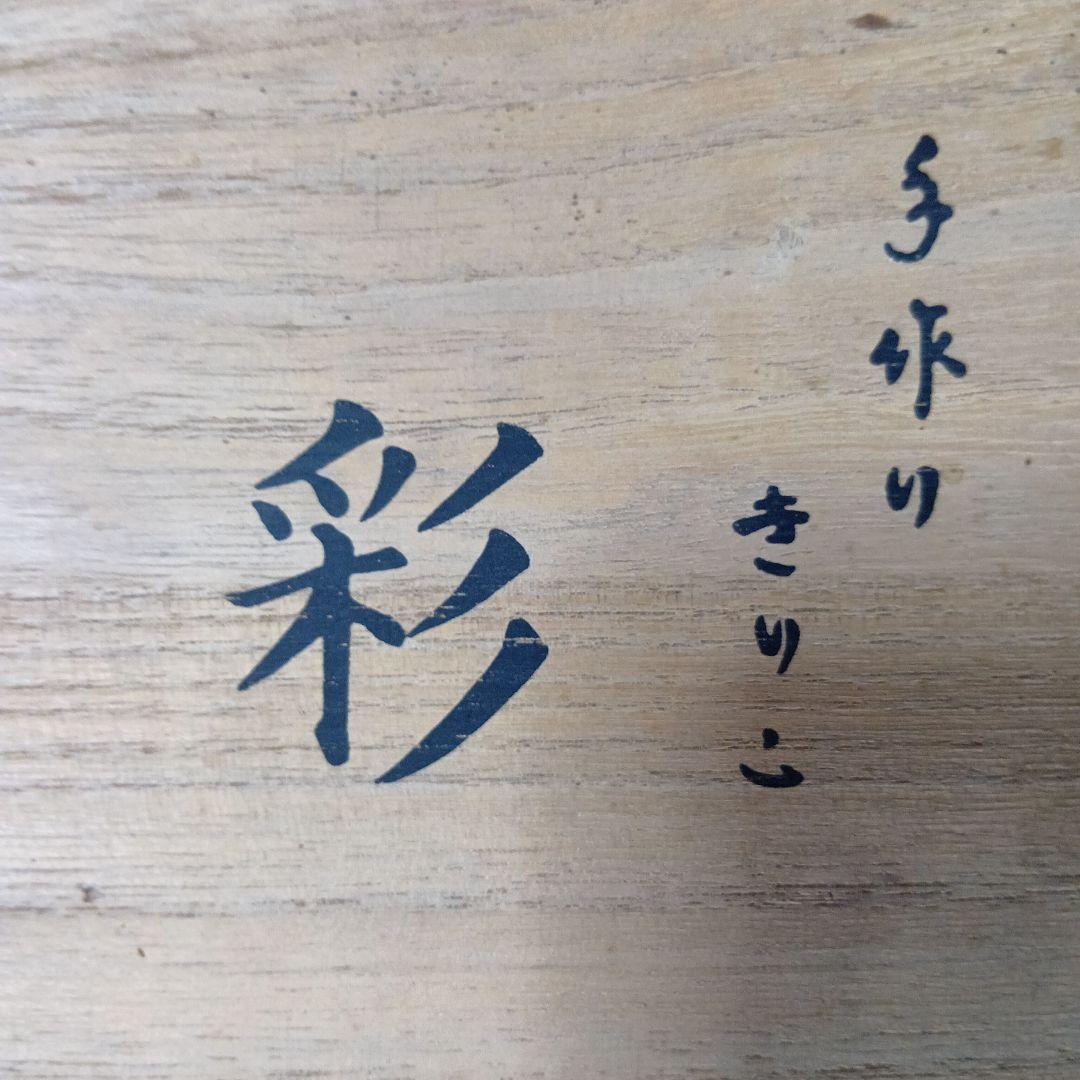 手作り
きりこ
彩